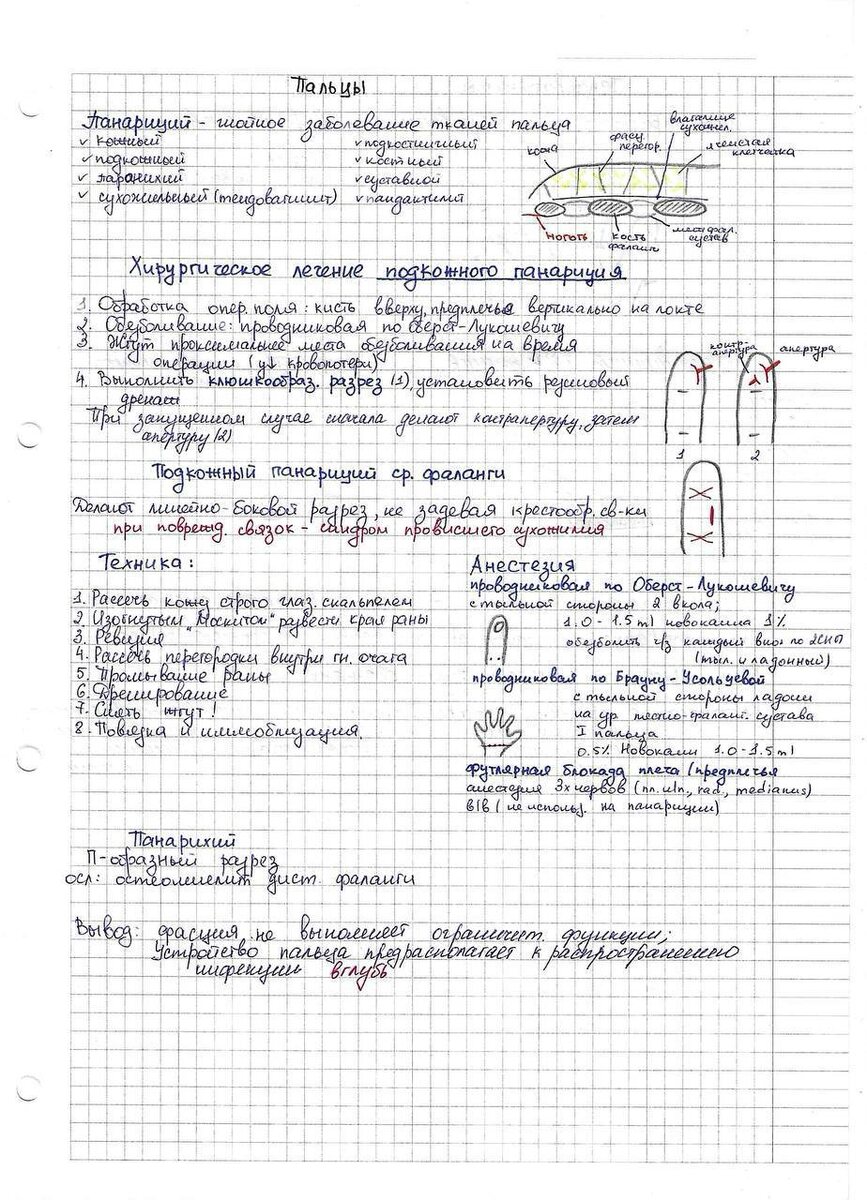 Пальцы
Панариций - гнойное заболевание тканей пальца
✓ кожный
✓ подкожный
✓ паранихий
✓ сухожильный (тендовагинит)
✓ подкостничный
✓ костный
✓ суставной
✓ пандактилит
кожа
фасц. перегор.
влагалище сухожил.
ячеистая клетчатка
ноготь
кость фаланги
межфал. сустав
Хирургическое лечение подкожного панариция
1. Обработка опер. поля: кисть вверху, предплечье вертикально на локте
2. Обезболивание: проводниковая по Оберст-Лукошевичу
3. Жгут проксимальнее места обезболивания на время
операции (у↓ кровопотери)
4. Выполнить клюшкообраз. разрез (1), установить резиновый
дренаж
При запущенном случае сначала делают контрапертуру, затем
апертуру (2)
контр-
апертура
апертура
1
2
Подкожный панариций ср. фаланги
Делают линейно-боковой разрез, не задевая крестообр. св-ки
при поврежд. связок - синдром провисшего сухожилия
Техника:
1. Рассечь кожу строго глаз. скальпелем
2. Изогнутым "Москитом" развести края раны
3. Ревизия
4. Рассечь перегородки внутри гн. очага
5. Промывание раны
6. Дренирование
7. Снять жгут!
8. Повязка и иммобилизация.
Анестезия
проводниковая по Оберст-Лукошевичу
с тыльной стороны 2 вкола;
1.0-1.5 ml новокаина 1%
обезболить ч/з каждый вкол по 2СНП
(тыл. и ладонный)
проводниковая по Брауну-Усольцевой
с тыльной стороны ладони
на ур. пястно-фаланг. сустава
I пальца
0.5% Новокаин 1.0-1.5 ml
футлярная блокада плеча (предплечья
анестезия 3х нервов (nn. uln., rad., medianus)
в/в (не использ. на панариции)
Панарихий
П-образный разрез
осл: остеомиелит дист. фаланги
Вывод: фасция не выполняет ограничит. функции;
Устройство пальца предрасполагает к распространению
инфекции вглубь